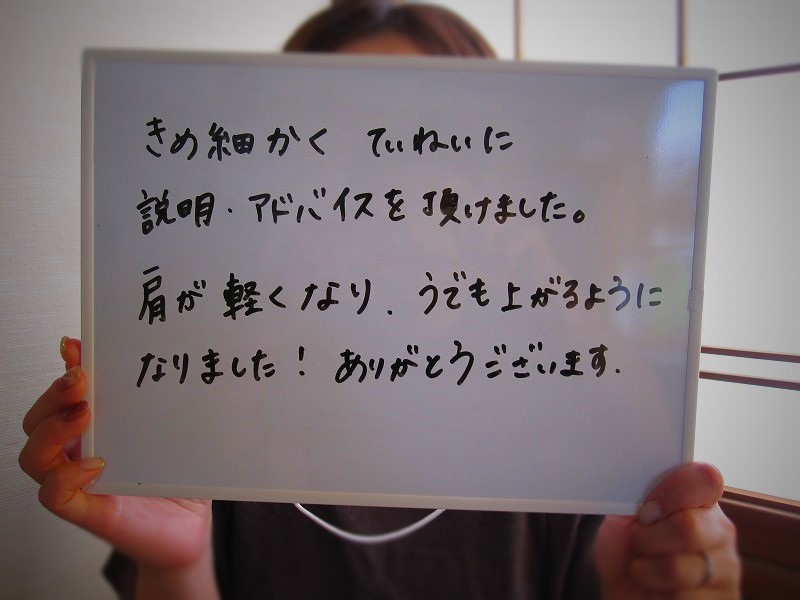 きめ細かく ていねいに
説明・アドバイスを頂けました。
肩が軽くなり、うでも上がるように
なりました！ ありがとうございます.